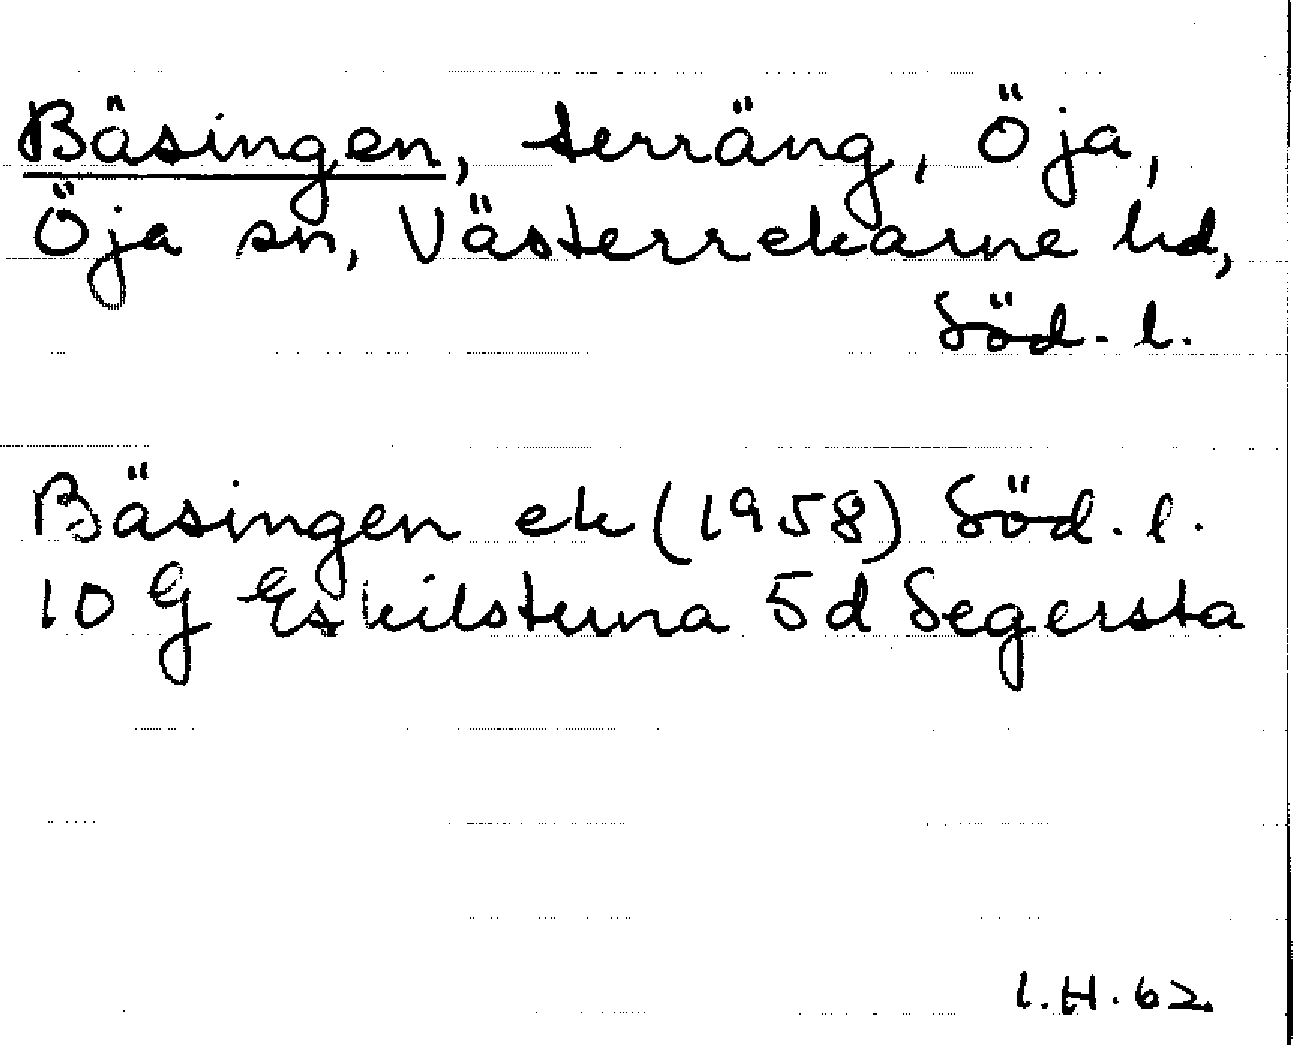 Bäsingen, terräng, Öja,
Öja sn, Västerrekarne hd,
Söd. l.
Bäsingen ek (1958) Söd. l.
10 G Eskilstuna 5d Segersta
I.H. 62.